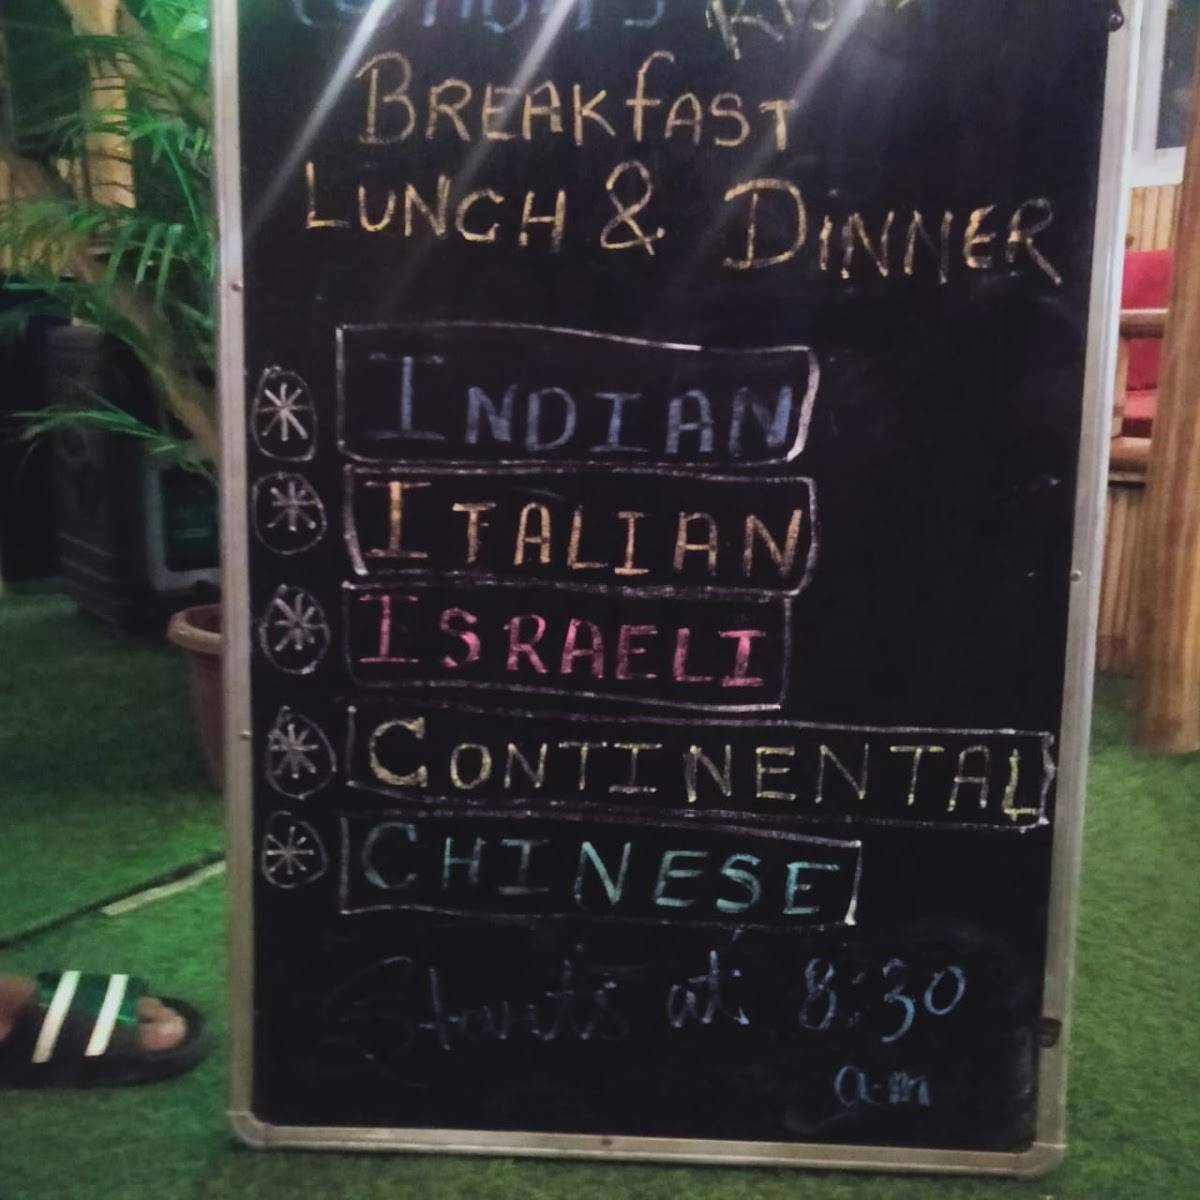 BREAKfAST
LUNCH & DINNER
INDIAN
ITALIAN
ISRAELI
CONTINENTAL
CHINESE
Starts at 8:30
a.m